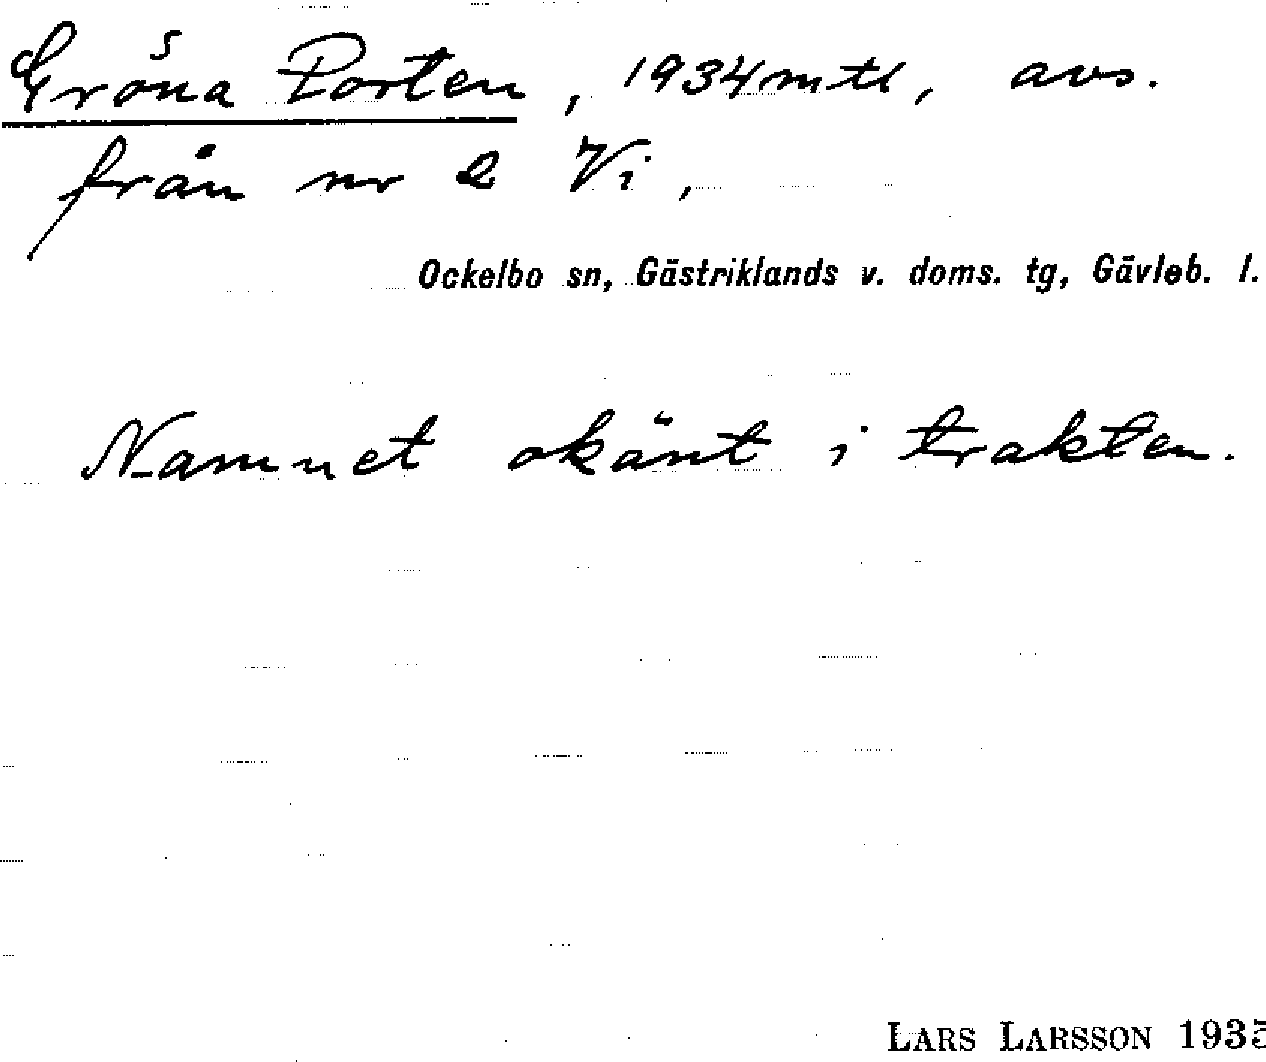 Gröna Porten, 1934 mtl, avs.
från nr 2 Vi,
Ockelbo sn, Gästriklands v. doms. tg, Gävleb. l.
Namnet okänt i trakten.
LARS LARSSON 1935